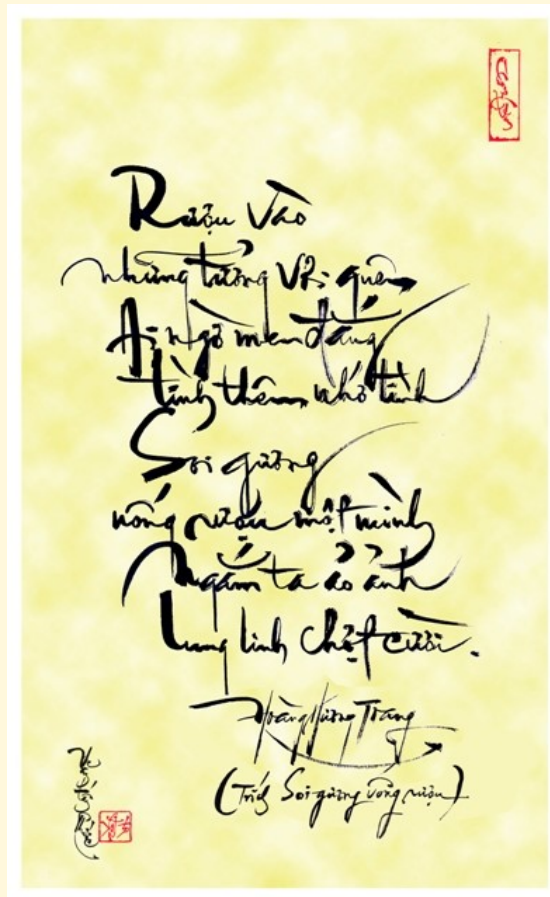 Rượu vào
những tưởng vơi quên
Ai ngờ men đắng
tình thêm nhớ tình
Soi gương
uống rượu một mình
Ngắm ta ảo ảnh
Lung linh chợt cười.
Hoàng Hương Trang
(Trích Soi gương uống rượu)